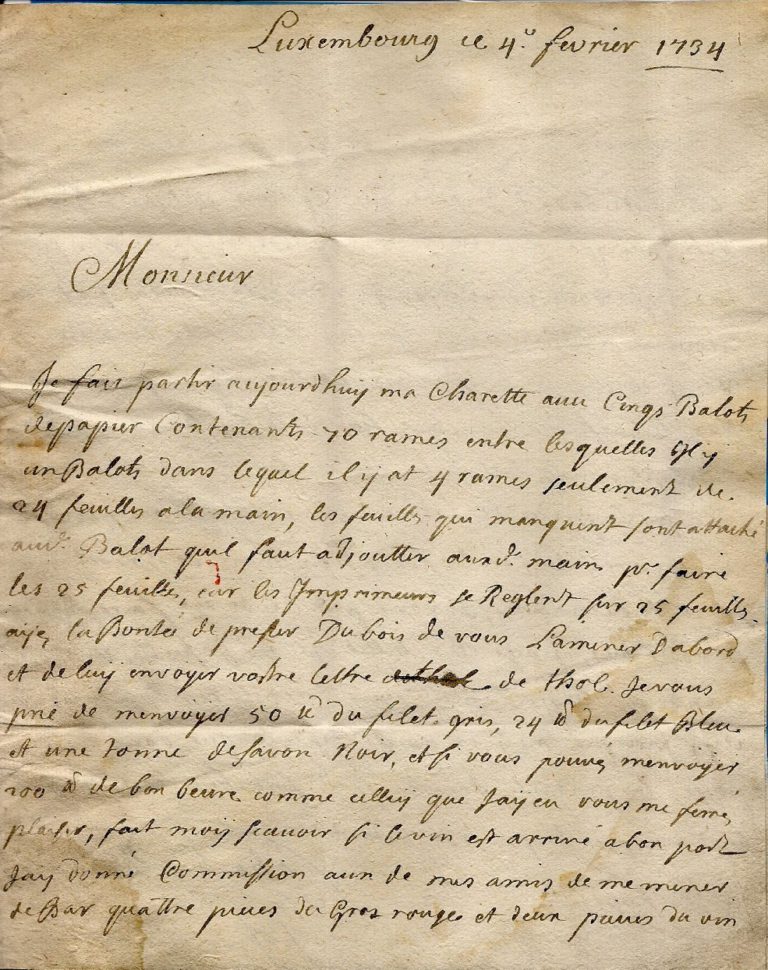 Luxembourg ce 4e fevrier 1734
Monsieur
Je fais partir aujourdhuy ma Charette avec Cinqs Balots
de papier Contenants 70 rames entre lesquelles Il y
un Balots dans lequel il y at 4 rames seulement de
24 feuilles a la main, les feuilles qui manquent sont attaché
aud. Balot quil faut adjoutter auxd. mains pr. faire
les 25 feuilles, car les Imprimeurs se Reglent sur 25 feuilles.
ayez la Bonté de Dubois de vous Lamener Dabord
et de luy envoyer vostre lettre de thol. Je vous
prié de menvoyer 50 lb du filet gris, 24 lb du filet Bleu
et une tonne de savon Noir, et si vous pouvez menvoyer
200 lb de bon beure comme celluy que Jay eu vous me ferez
plaisir, fait moy scavoir si le vin est arrivé a bon port
Jay donné Commission a un de mes amis de me mener
de Bar quattre pieces de Gros rouge et deux pieces du vin